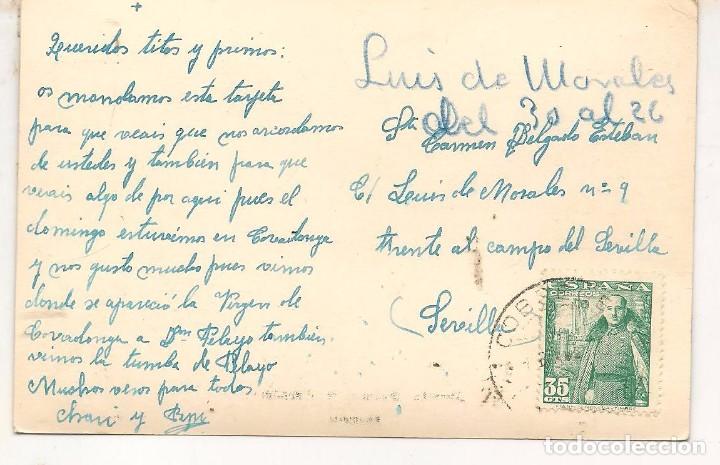 Queridos titos y primos:
os mandamos esta tarjeta
para que veais que nos acordamos
de ustedes y también para que
veais algo de por aqui pues el
domingo estuvimos en Covadonga
y nos gusto mucho pues vimos
donde se apareció la Virgen de
Covadonga a Dn Pelayo también
vimos la tumba de Playo
Muchos vesos para todos
Chari y
Luis de Morales
del 30 al 26
Sta Carmen Delgado Esteban
C/ Luis de Morales nº 9
Frente al campo del Sevilla
Sevilla
ESPAÑA
CORREOS
35
CTS
todocoleccion